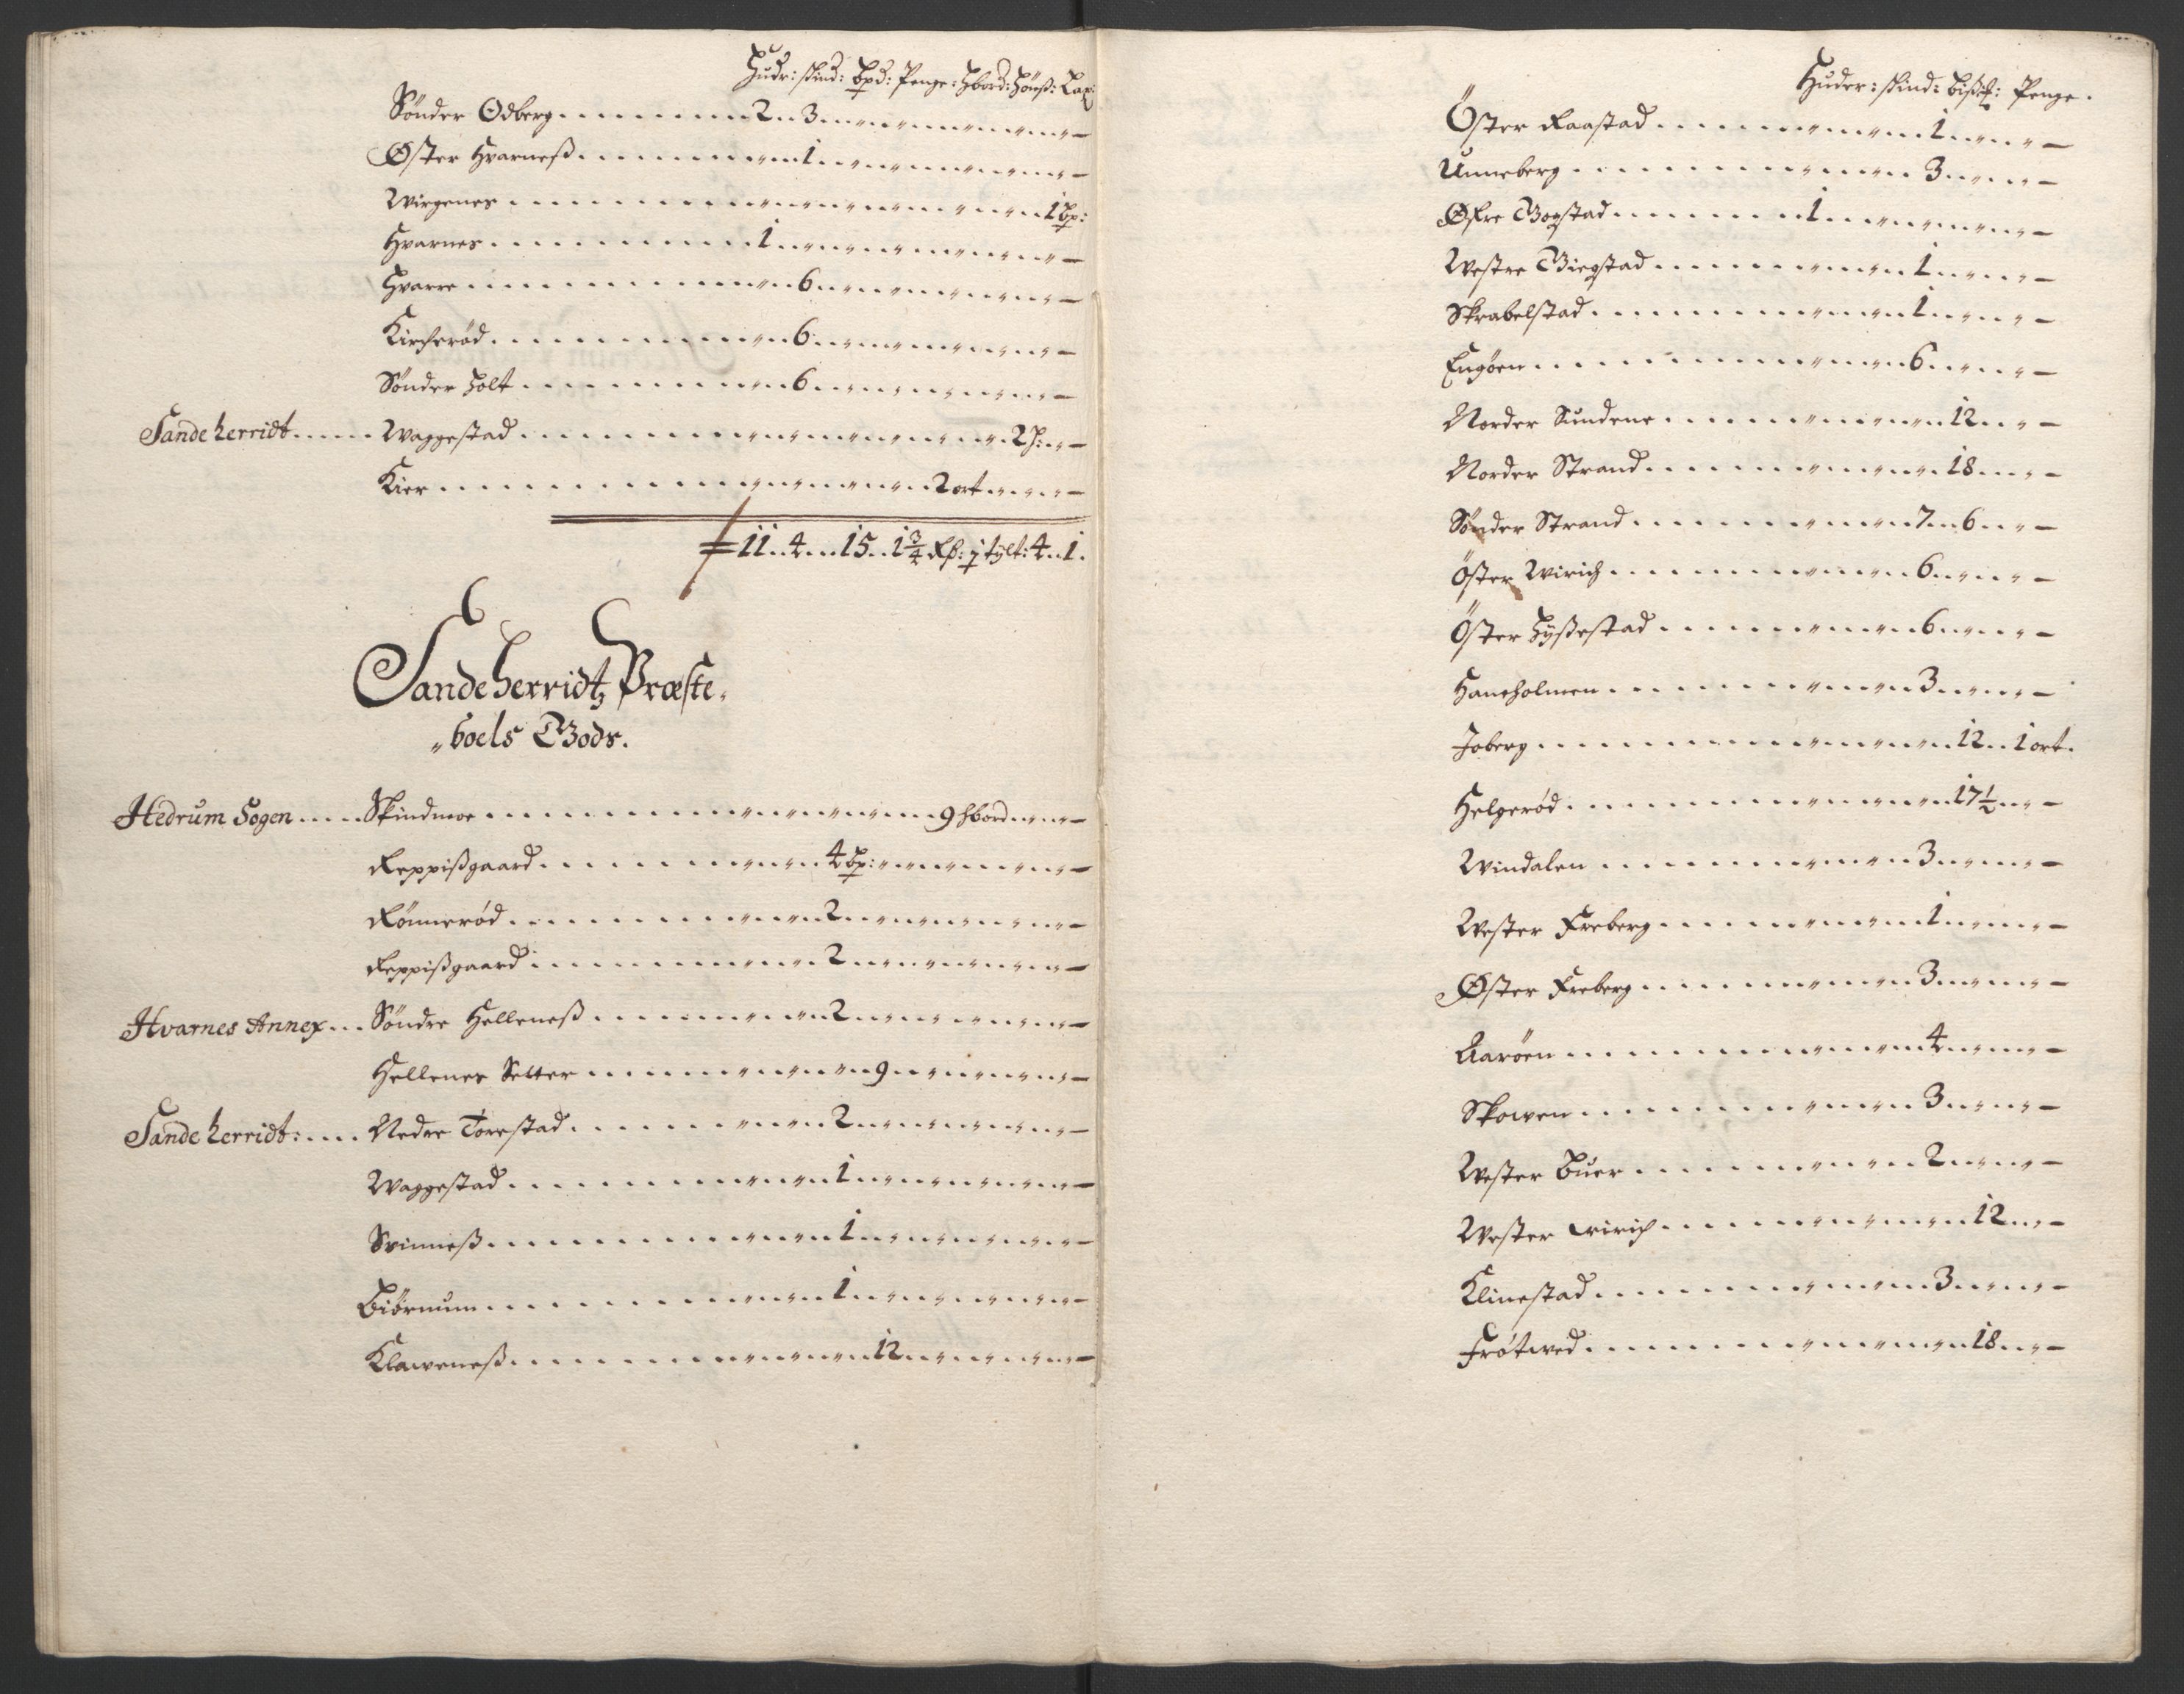 Hudr: skind: bpd: Penge: Hbord: Hönß: Lax:
Sønder Odberg . . . . 2 . 3 . . . . —
Øster Hvarneß . . . . 1 . . . . —
Wirgenes . . . . 1 bp:
Hvarnes . . . . 1 . . . . —
Hvarre . . . . 6 . . . . —
Kircherød . . . . 6 . . . . —
Sønder Holt . . . . 6 . . . . —
Sandeherridt . . . . Waggestad . . . . 2 h: . . —
Kier . . . . 2 ort . . . . —
11 . . 4 . . . 15 . . 1 3/4 Rß: 1/2 tylt: 4 . . 1 .
Sandeherridtz Præste„
„boels Gods.
Hedrum Sogen . . . . Skindmoe . . . . 9 hbord . . . —
Reppißgaard . . . . 4 bp: . . . . —
Rönnerød . . . . 2 . . . . —
Reppißgaard . . . . 2 . . . . —
Hvarnes Annex . . . Söndre Helleneß . . . . 2 . . . . —
Hellenes Setter . . . . 9 . . . . —
Sandeherridt: . . . . Nedre Torestad . . . . 2 . . . . —
Waggestad . . . . 1 . . . . —
Svinneß . . . . 1 . . . . —
Biörnum . . . . 1 . . . . —
Klaweneß . . . . 12 . . . . —
Huder: skind: bißp: Penge.
Öster Raastad . . . . 1 . . . . —
Unneberg . . . . 3 . . . . —
Øfre Gogstad . . . . 1 . . . . —
Westre Giegstad . . . . 1 . . . . —
Skrabelstad . . . . 1 . . . . —
Engöen . . . . 6 . . . . —
Norder Sundene . . . . 12 . . . —
Norder Strand . . . . 18 . . . —
Sønder Strand . . . . 7 . . 6 . . . —
Öster Wirich . . . . 6 . . . . —
Öster Hyßestad . . . . 6 . . . . —
Haneholmen . . . . 3 . . . . —
Joberg . . . . 12 . . 1 ort.
Helgerød . . . . 17 1/2 . . . —
Windalen . . . . 3 . . . . —
Wester Freberg . . . . 1 . . . . —
Øster Freberg . . . . 3 . . . . —
Aaröen . . . . 4 . . . . —
Skowen . . . . 3 . . . . —
Wester Buer . . . . 2 . . . . —
Wester wirich . . . . 12 . . . —
Klinestad . . . . 3 . . . . —
Frötwed . . . . 18 . . . —